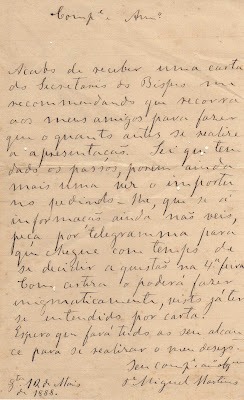 Comp.e e Am.o
Acabo de receber uma carta
do Secretario do Bispo me
recommendando que recorra
aos meus amigos para fazer
que o quanto antes se realize
a apresentação. Sei que tem
dado os passos, porem ainda
mais uma vez o importu
no pedindo-lhe, que se a
informação ainda não veio,
peça por telegramma para
que chegue com tempo de
se decidir a questão na 4ª feira
Com arte o poderá fazer
enigmaticamente, visto já ter
se entendido por carta.
Espero que fará tudo ao seu alcan
ce para si realizar o meu desejo.
Seu comp.e am.o
P.e Miguel Martins
10 de Maio
de 1888.